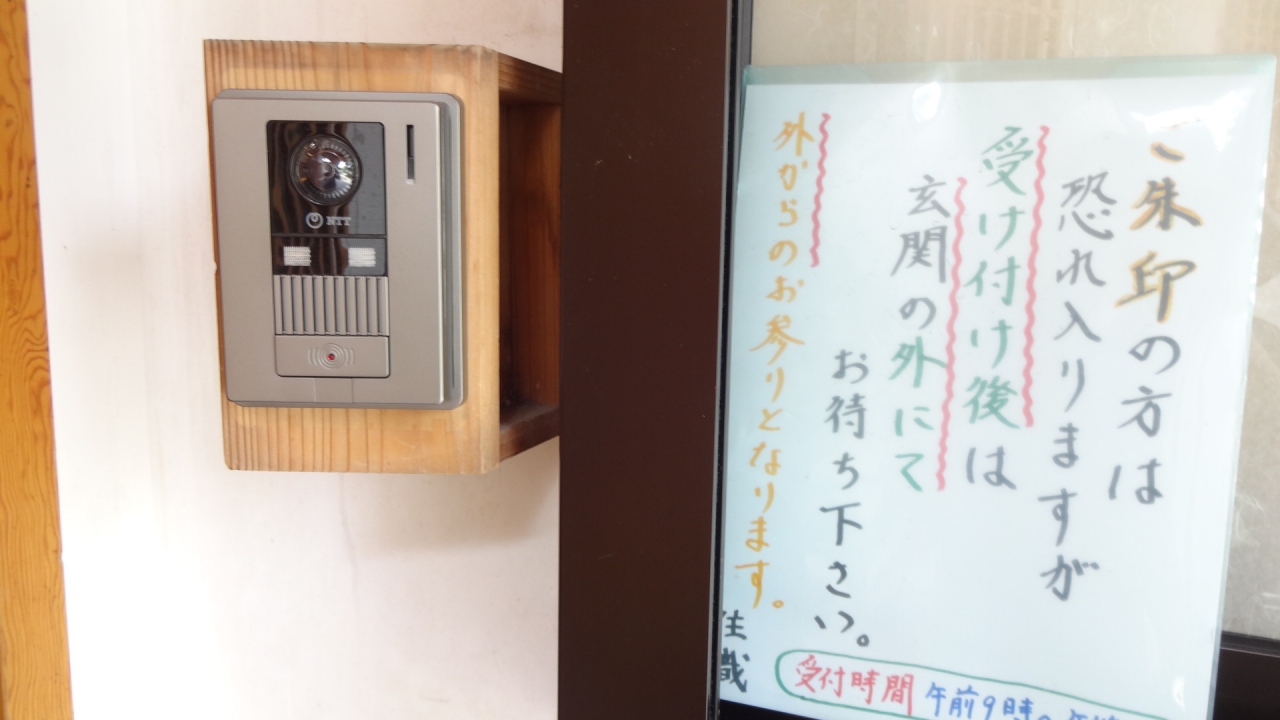 ご朱印の方は
恐れ入りますが
受け付け後は
玄関の外にて
お待ち下さい。
外からのお参りとなります。
住職
受付時間 午前9時〜午
NTT